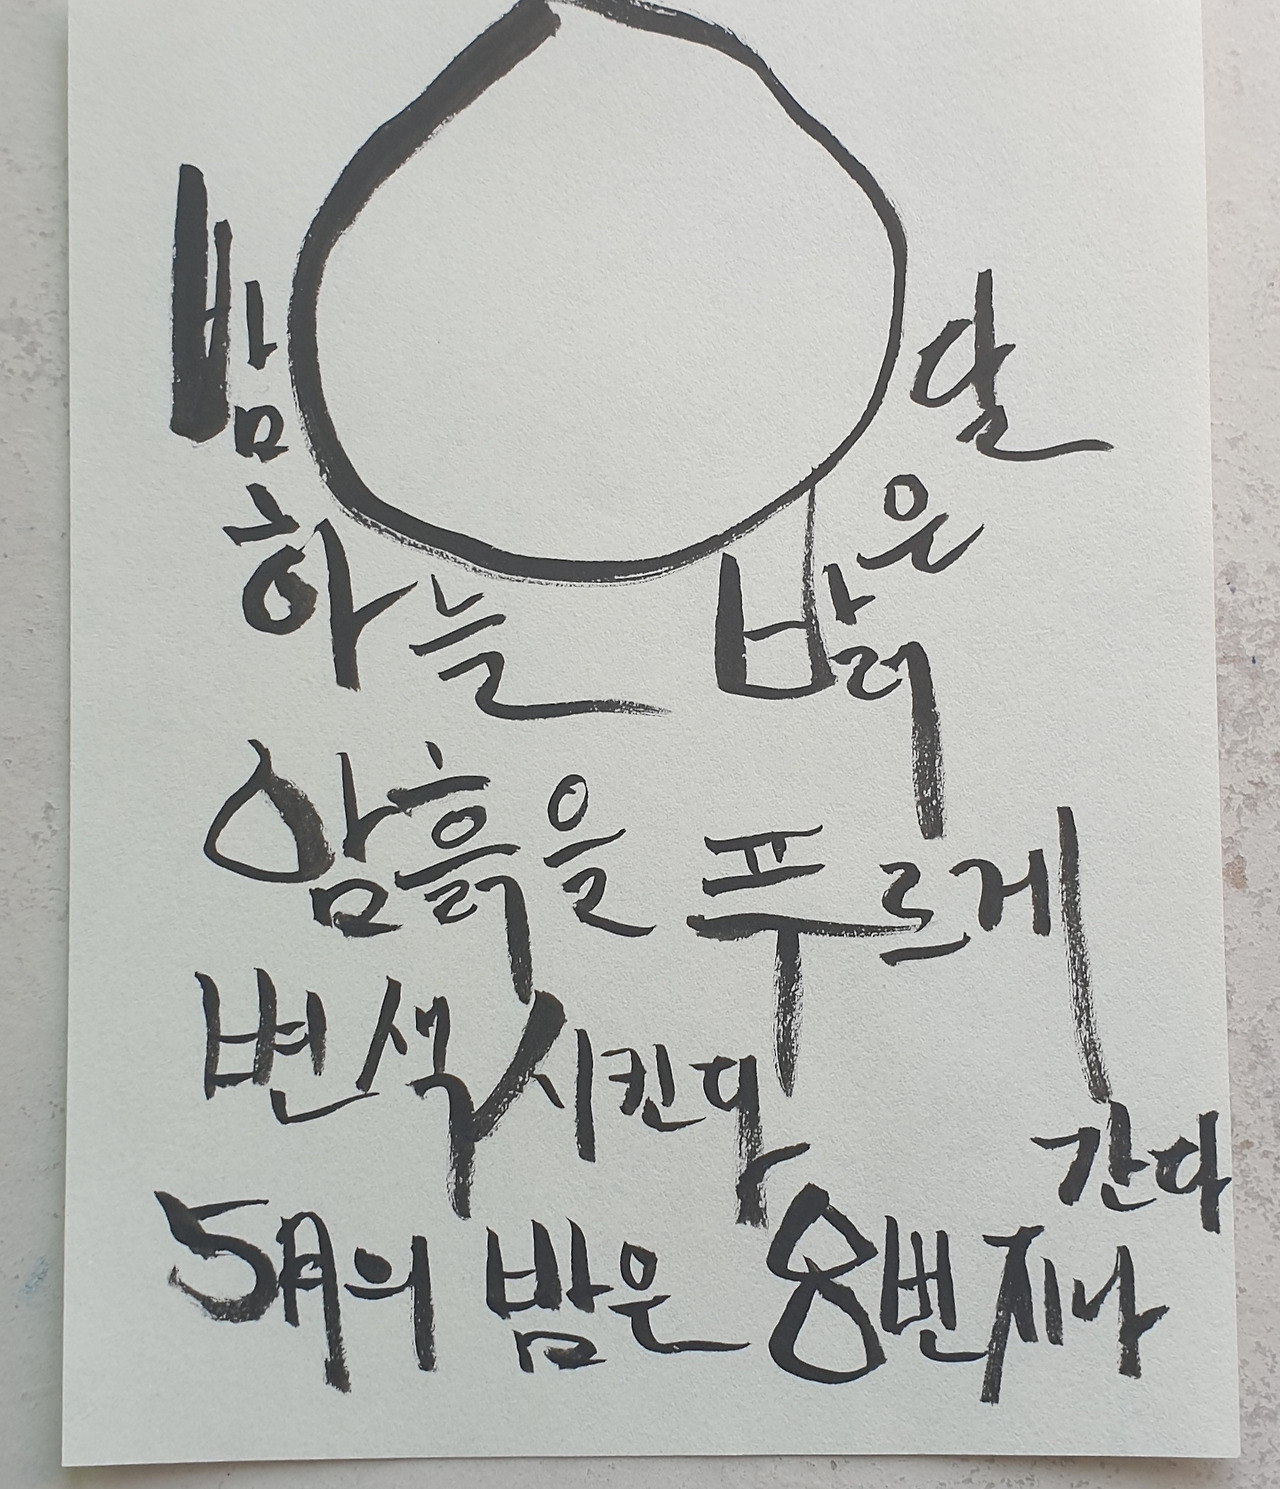 밤하늘
밝은 달
암흙을 푸르게
변색시킨다
5月의 밤은 8번 지나
간다